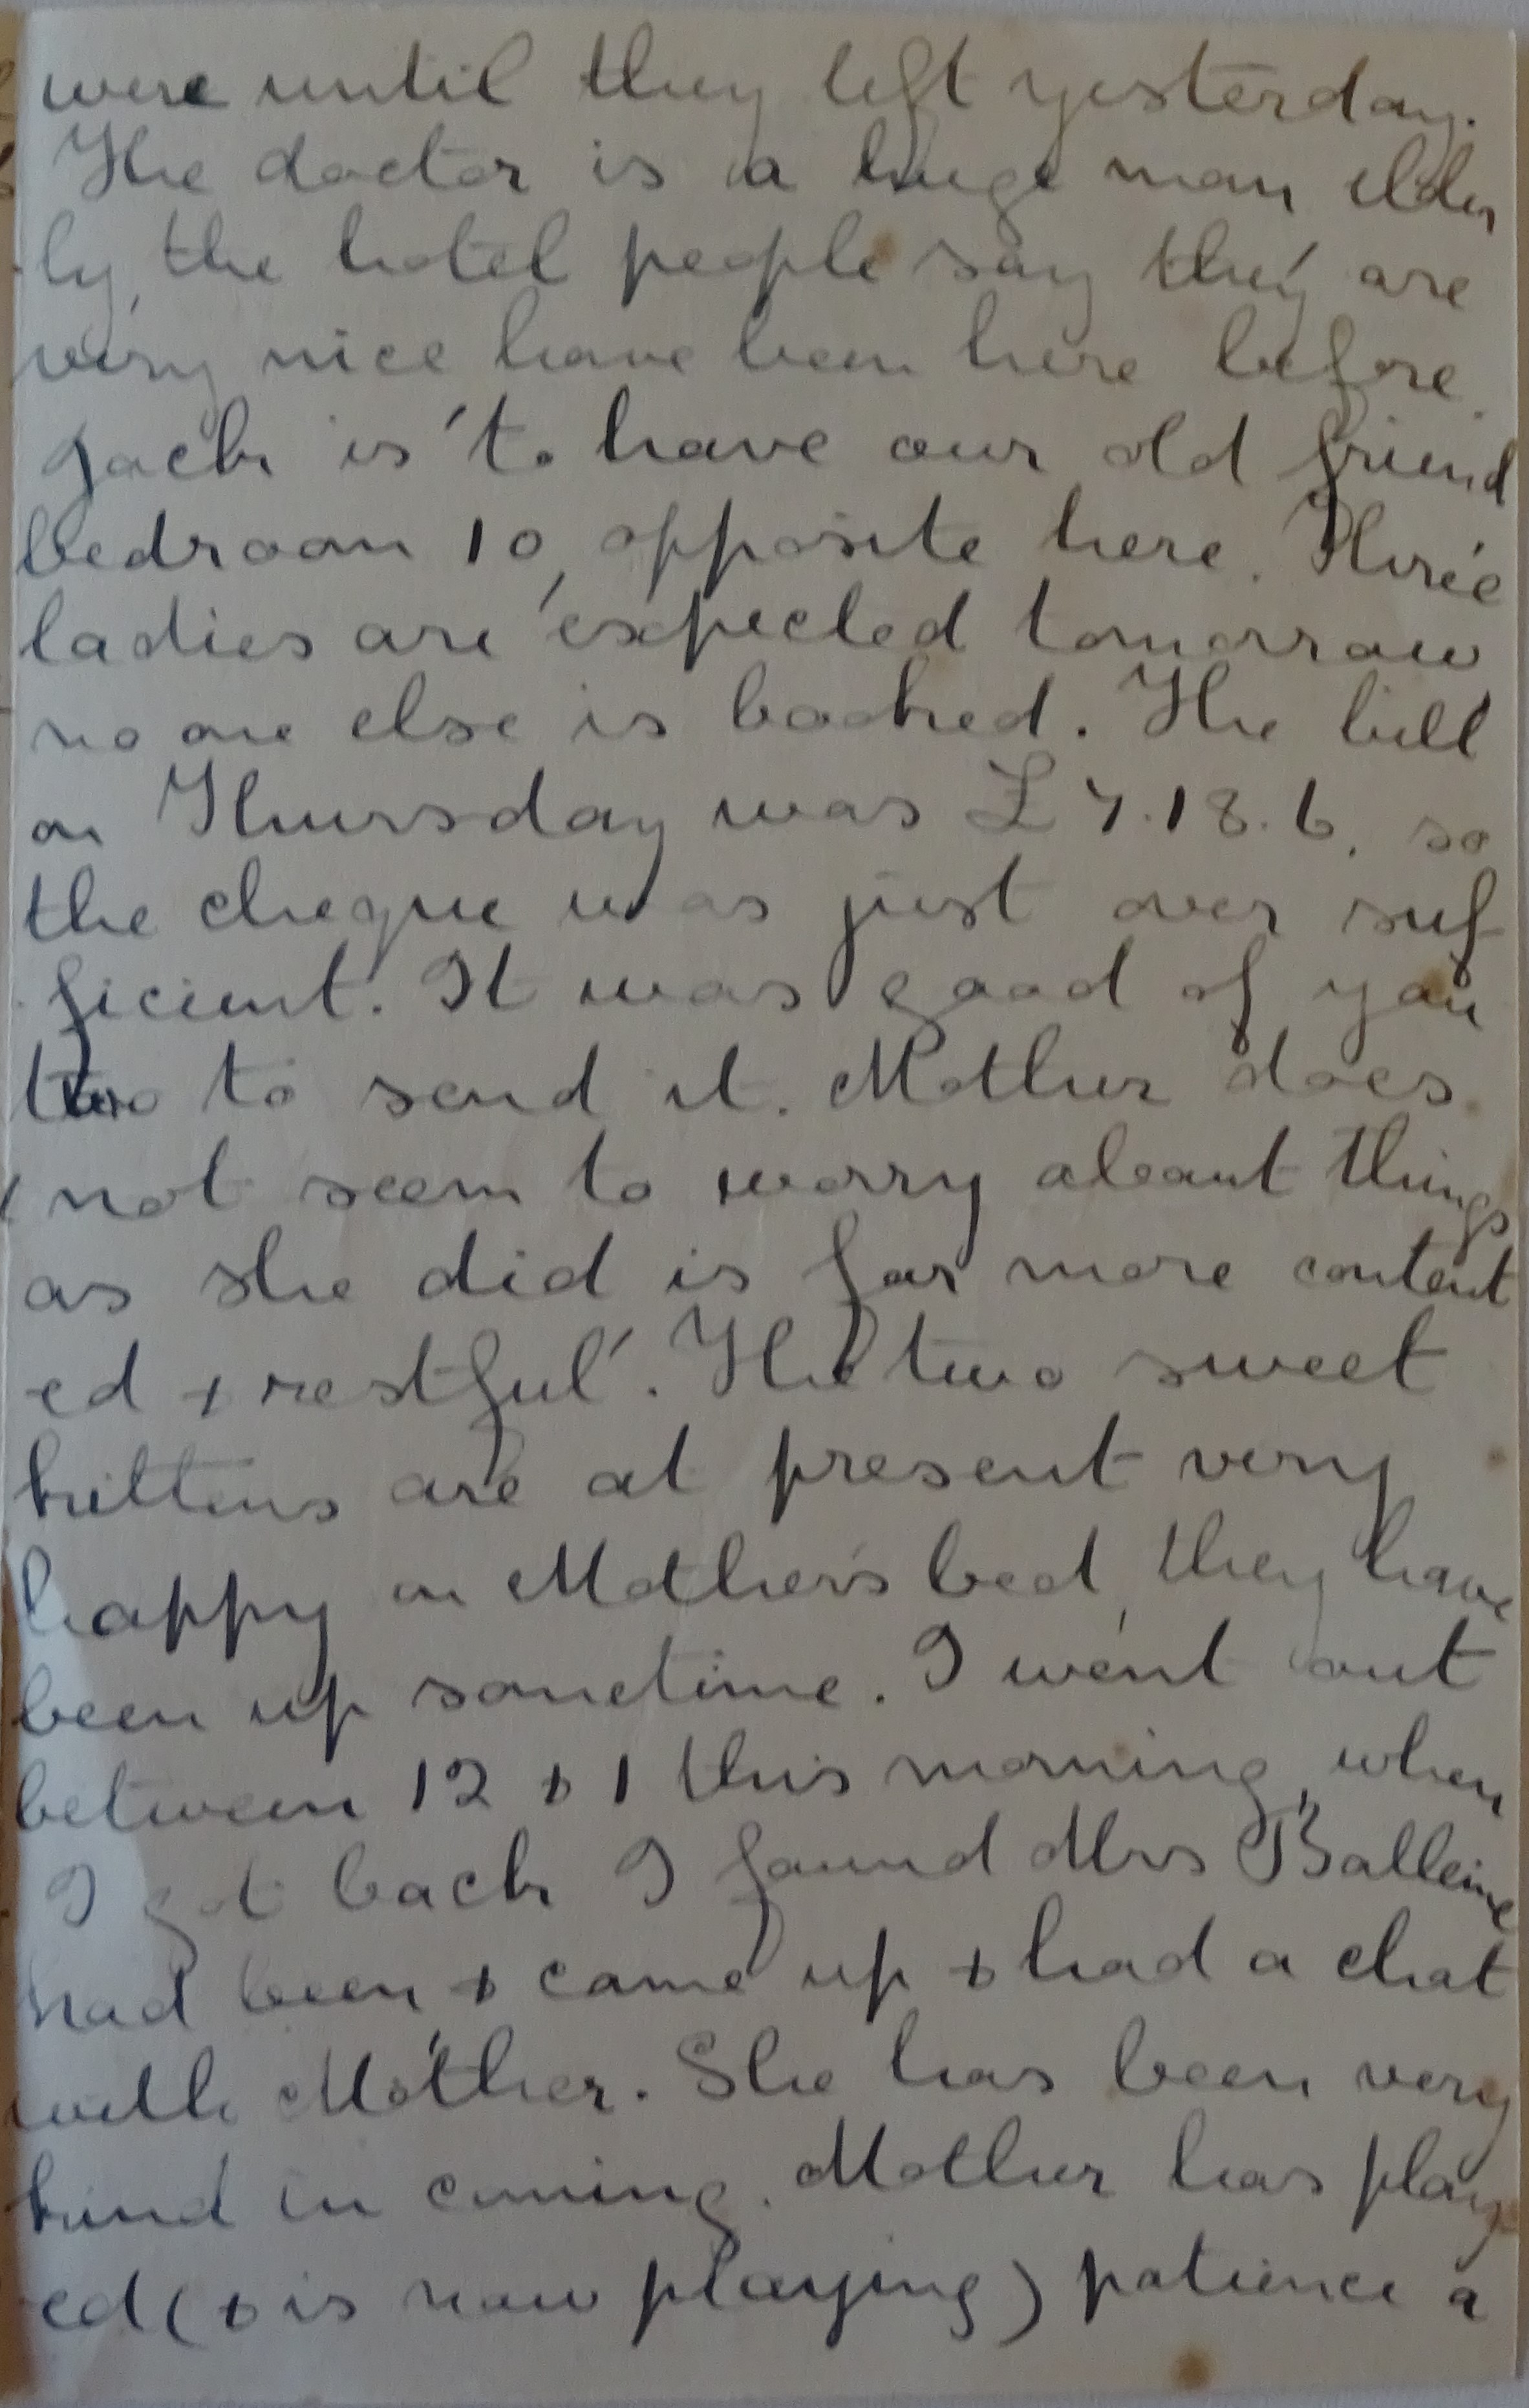 were until they left yesterday.
The doctor is a huge man elder
ly, the hotel people say they are
very nice have been here before.
Jack is to have our old friend
bedroom 10, opposite here. Three
ladies are expected tomorrow,
no one else is booked. The bill
on Thursday was £7.18.6. so
the cheque was just over suf
ficient. It was good of you
two to send it. Mother does
not seem to worry about things
as she did is far more content
ed & restful. The two sweet
kittens are at present very
happy on Mother's bed, they have
been up sometime. I went out
between 12 & 1 this morning, when
I got back I found Mrs Balleine
had been & came up & had a chat
with Mother. She has been very
kind in coming. Mother has play
ed (& is now playing) patience a